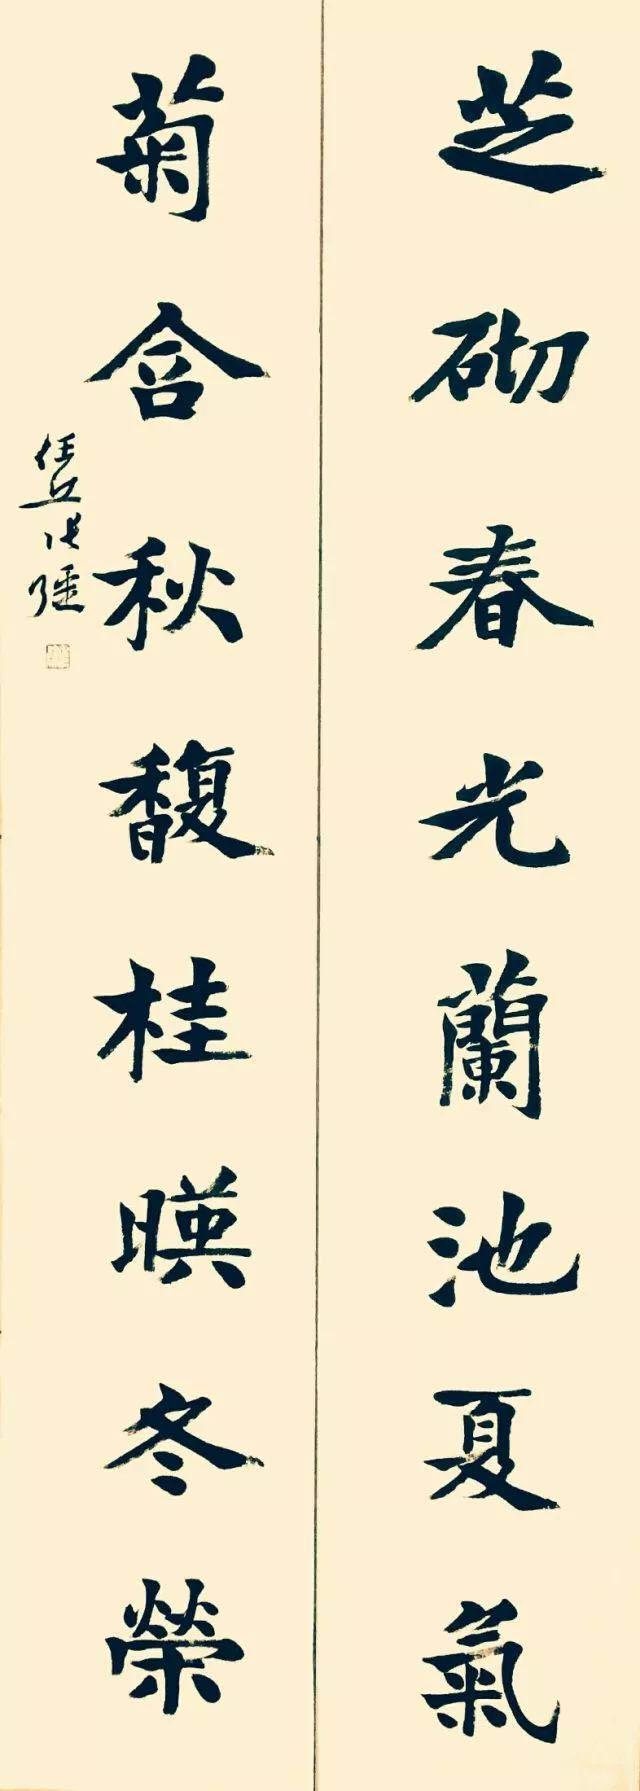 芝砌春光蘭池夏氣
菊含秋馥桂暎冬榮
任丘張疆